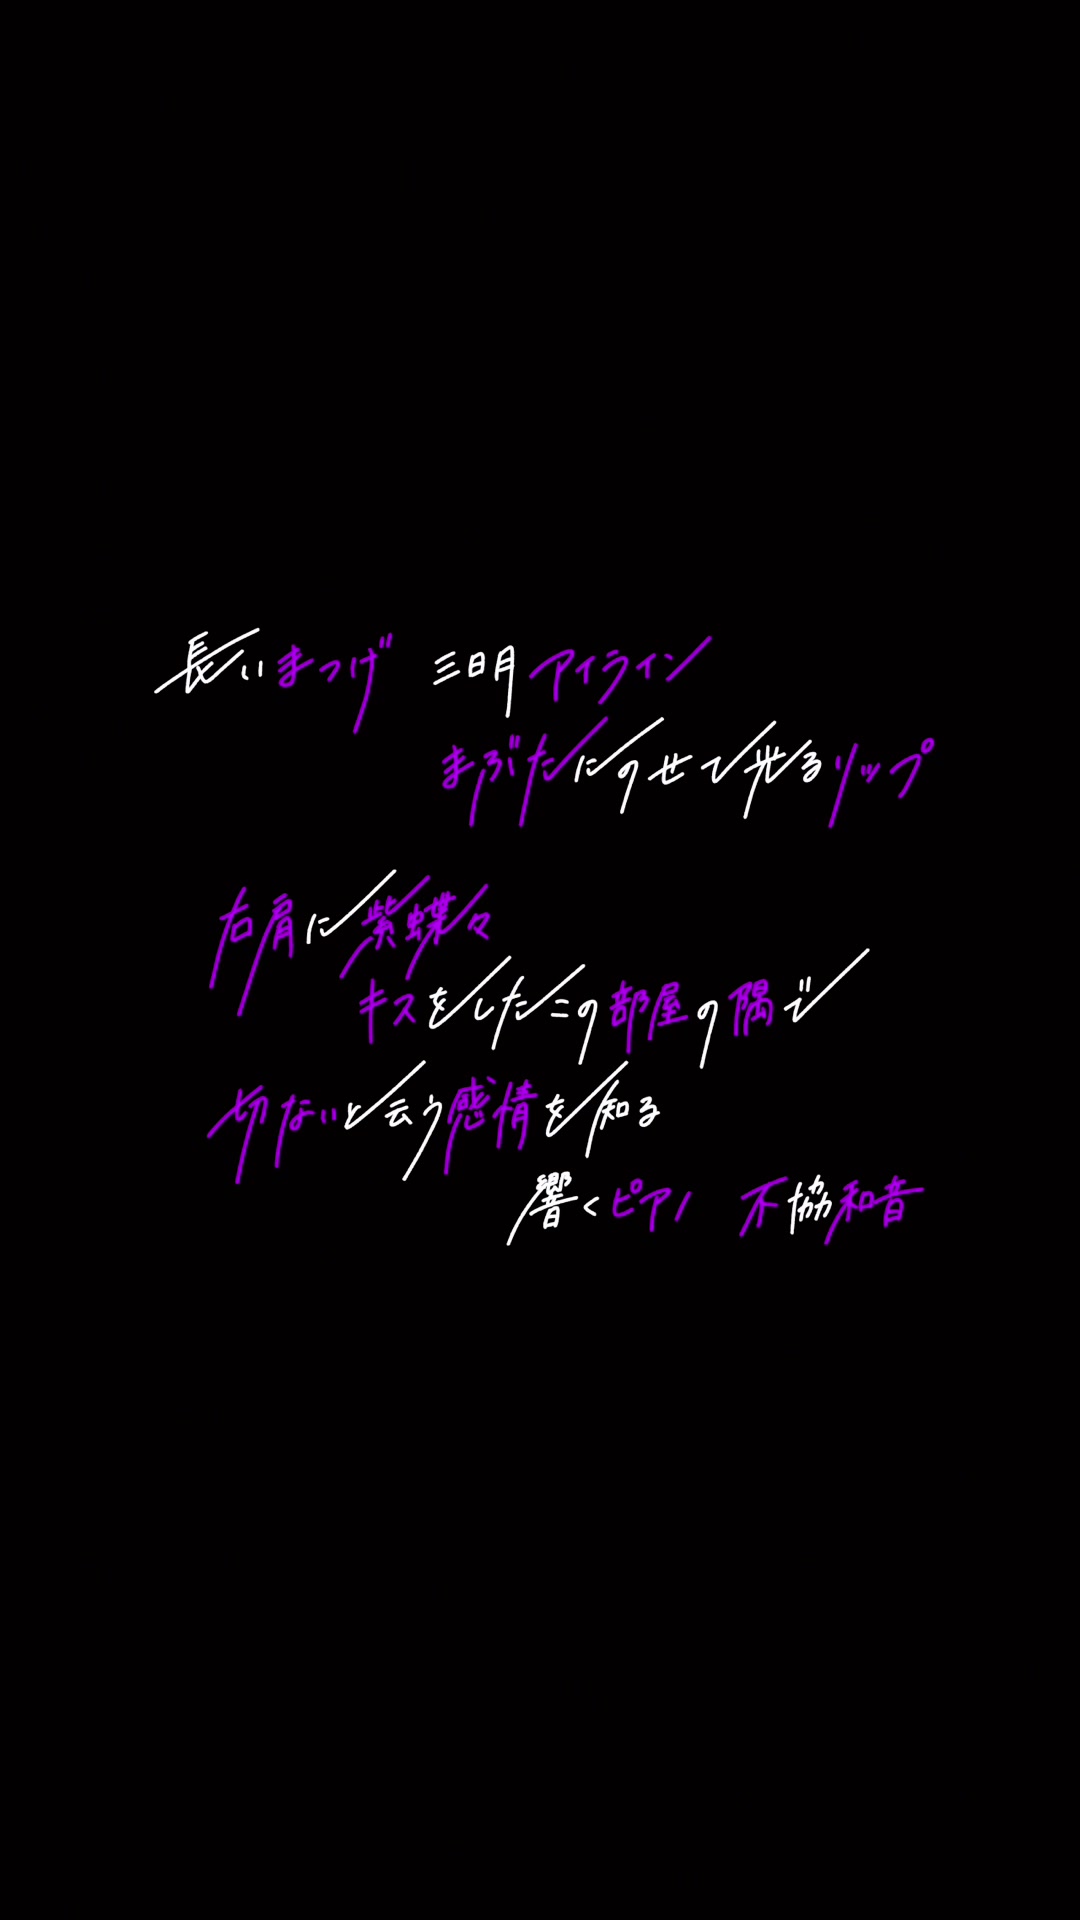 長いまつげ 三日月アイライン
まぶたにのせて光るリップ
右肩に紫蝶々
キスをしたこの部屋の隅で
切ないと云う感情を知る
響くピアノ 不協和音